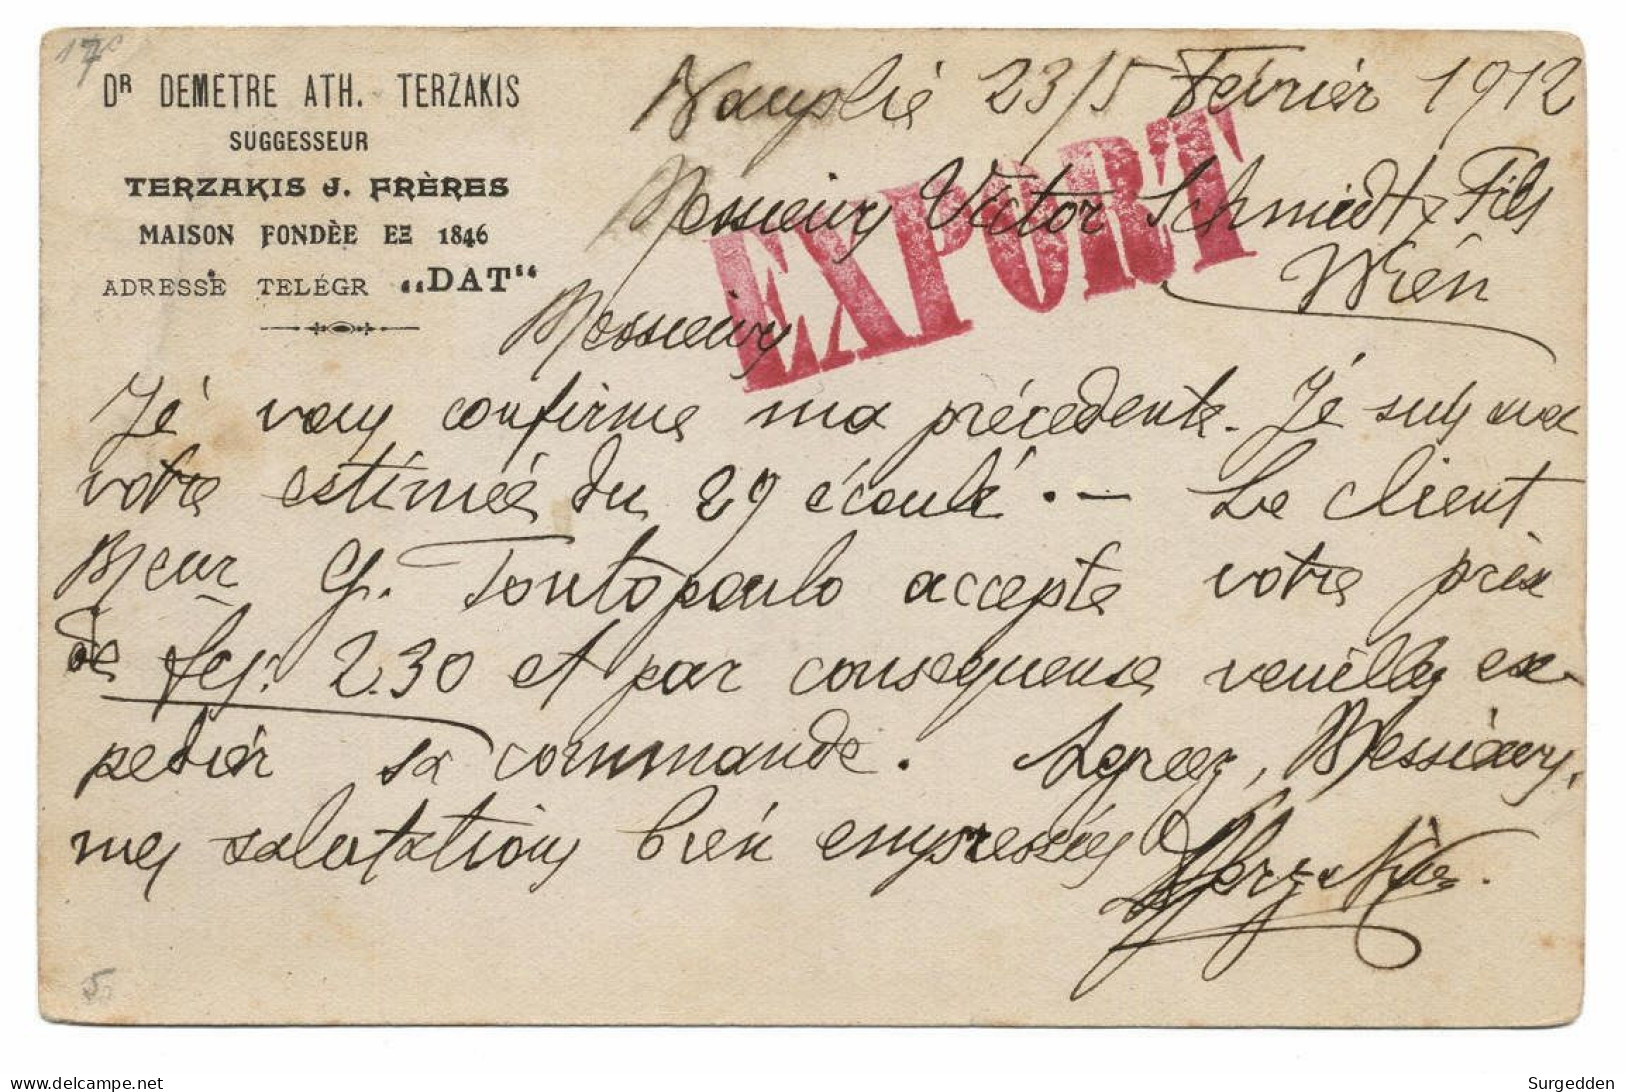 17
Dʀ DEMETRE ATH. TERZAKIS
SUGGESSEUR
TERZAKIS J. FRÈRES
MAISON FONDÈE EΞ 1846
ADRESSE TELÉGR „DAT“
Nauplié 23/5 Février 1912
EXPORT
Messieurs Victor Schmidt & Fils
Wien
Messieurs
Je vous confirme ma précedente. Je suis
votre estimée du 29 écoulé .— Le client
Meur G. Toutopoulo accepte votre prix
de 2.30 et par consequense veuillez ex-
pedier sa commande. Agreez, Messieurs,
mes salutations bien empressées
5
Surgedden